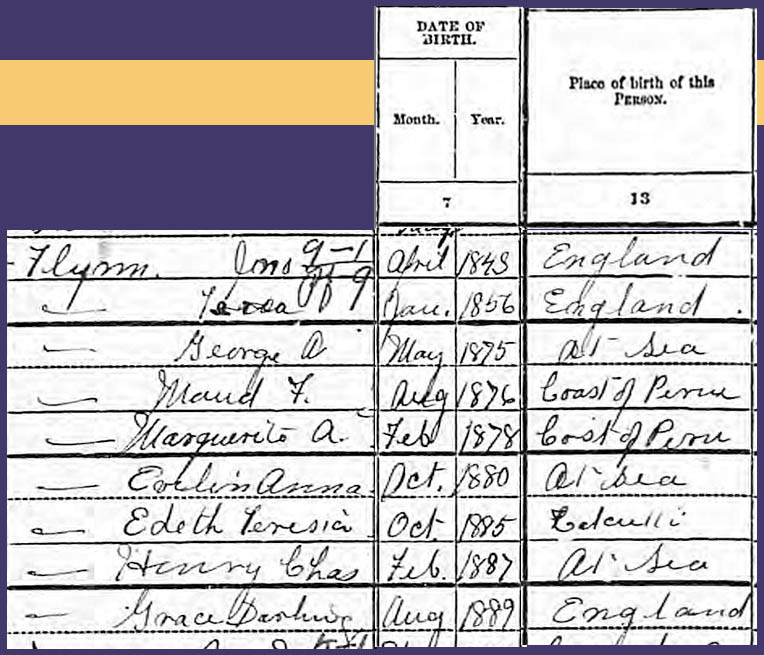 DATE OF BIRTH.
Month. Year. Place of birth of this PERSON.
7 13
Flynn. Jno 9-1 April 1843 England
— Jan. 1856 England.
— George A May 1875 At Sea
— Maud F. Aug 1876 Coast of Peru
— Marguerite A. Feb 1878 Cost of Peru
— Evelin Anna Oct. 1880 At Sea
— Edeth Teresia Oct. 1885 Calcutti
— Henry Chas Feb. 1887 At Sea
— Grace Darling Aug 1889 England